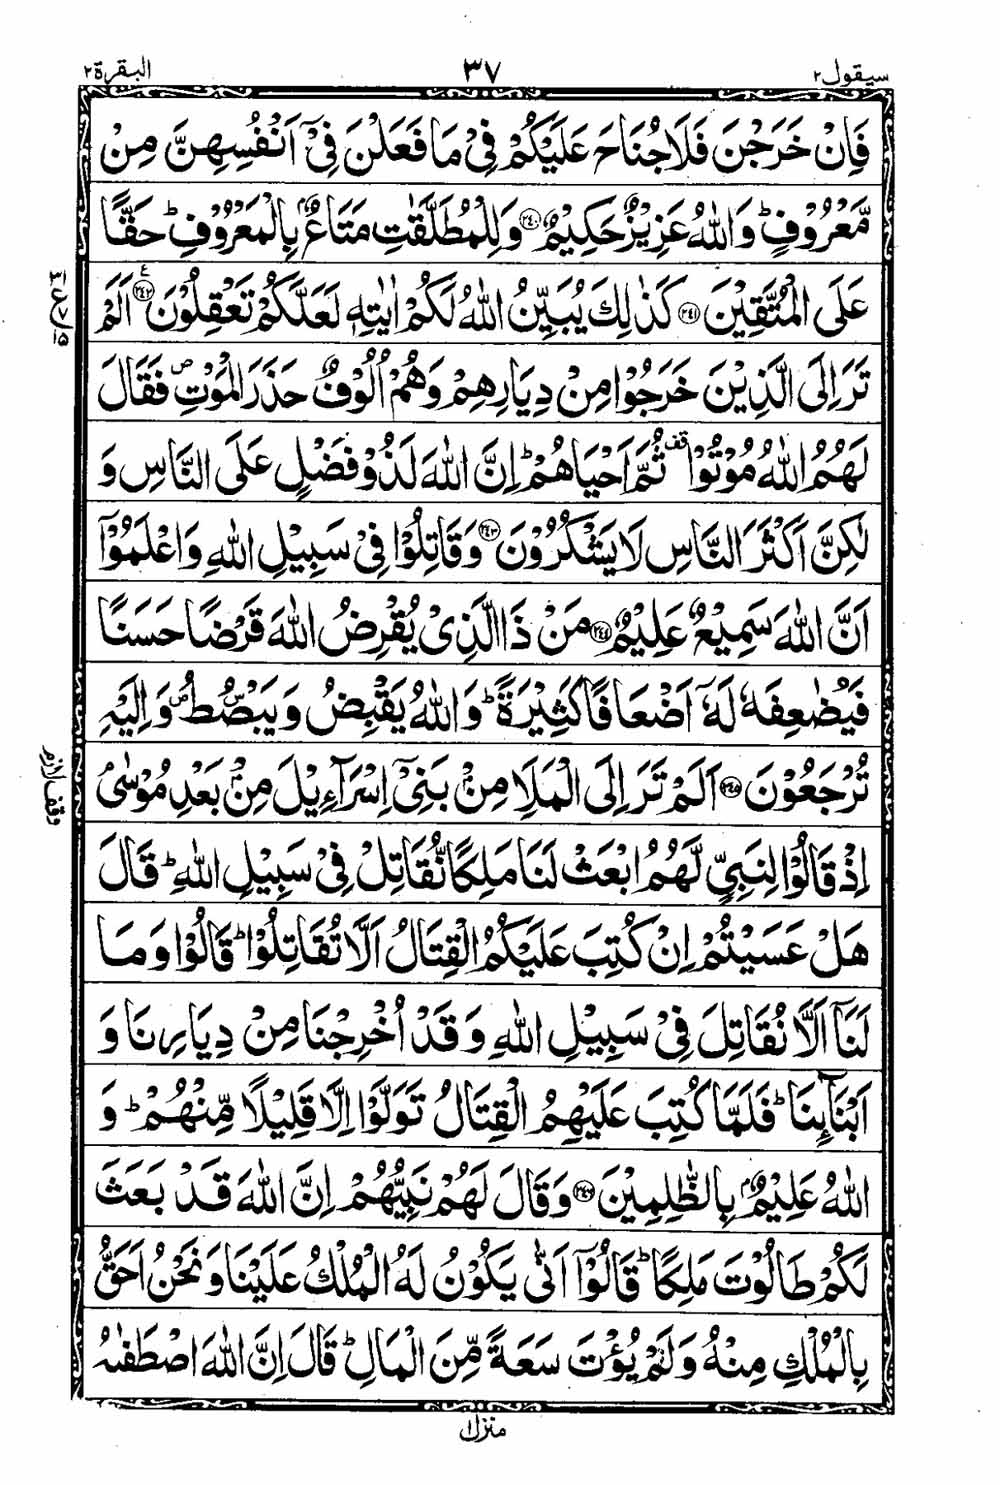 سیقول ٢
٣٧
البقرة ٢
فَاِنْ خَرَجْنَ فَلَا جُنَاحَ عَلَیْكُمْ فِیْ مَا فَعَلْنَ فِیْۤ اَنْفُسِهِنَّ مِنْ
مَّعْرُوْفٍ ؕ وَاللّٰهُ عَزِیْزٌ حَكِیْمٌ ﴿٢٤٠﴾ وَلِلْمُطَلَّقٰتِ مَتَاعٌۢ بِالْمَعْرُوْفِ ؕ حَقًّا
عَلَی الْمُتَّقِیْنَ ﴿٢٤١﴾ كَذٰلِكَ یُبَیِّنُ اللّٰهُ لَكُمْ اٰیٰتِهٖ لَعَلَّكُمْ تَعْقِلُوْنَ ﴿٢٤٢﴾ۧ اَلَمْ
تَرَ اِلَی الَّذِیْنَ خَرَجُوْا مِنْ دِیَارِهِمْ وَهُمْ اُلُوْفٌ حَذَرَ الْمَوْتِ ۪ فَقَالَ
لَهُمُ اللّٰهُ مُوْتُوْا قف ثُمَّ اَحْیَاهُمْ ؕ اِنَّ اللّٰهَ لَذُوْ فَضْلٍ عَلَی النَّاسِ وَ
لٰكِنَّ اَكْثَرَ النَّاسِ لَا یَشْكُرُوْنَ ﴿٢٤٣﴾ وَقَاتِلُوْا فِیْ سَبِیْلِ اللّٰهِ وَاعْلَمُوْۤا
اَنَّ اللّٰهَ سَمِیْعٌ عَلِیْمٌ ﴿٢٤٤﴾ مَنْ ذَا الَّذِیْ یُقْرِضُ اللّٰهَ قَرْضًا حَسَنًا
فَیُضٰعِفَهٗ لَهٗۤ اَضْعَافًا كَثِیْرَةً ؕ وَاللّٰهُ یَقْبِضُ وَیَبْصُۜطُ ۪ وَاِلَیْهِ
تُرْجَعُوْنَ ﴿٢٤٥﴾ اَلَمْ تَرَ اِلَی الْمَلَاِ مِنْۢ بَنِیْۤ اِسْرَآءِیْلَ مِنْۢ بَعْدِ مُوْسٰی ۘ
اِذْ قَالُوْا لِنَبِیٍّ لَّهُمُ ابْعَثْ لَنَا مَلِكًا نُّقَاتِلْ فِیْ سَبِیْلِ اللّٰهِ ؕ قَالَ
هَلْ عَسَیْتُمْ اِنْ كُتِبَ عَلَیْكُمُ الْقِتَالُ اَلَّا تُقَاتِلُوْا ؕ قَالُوْا وَمَا
لَنَاۤ اَلَّا نُقَاتِلَ فِیْ سَبِیْلِ اللّٰهِ وَقَدْ اُخْرِجْنَا مِنْ دِیَارِنَا وَ
اَبْنَآىِٕنَا ؕ فَلَمَّا كُتِبَ عَلَیْهِمُ الْقِتَالُ تَوَلَّوْا اِلَّا قَلِیْلًا مِّنْهُمْ ؕ وَ
اللّٰهُ عَلِیْمٌۢ بِالظّٰلِمِیْنَ ﴿٢٤٦﴾ وَقَالَ لَهُمْ نَبِیُّهُمْ اِنَّ اللّٰهَ قَدْ بَعَثَ
لَكُمْ طَالُوْتَ مَلِكًا ؕ قَالُوْۤا اَنّٰی یَكُوْنُ لَهُ الْمُلْكُ عَلَیْنَا وَنَحْنُ اَحَقُّ
بِالْمُلْكِ مِنْهُ وَلَمْ یُؤْتَ سَعَةً مِّنَ الْمَالِ ؕ قَالَ اِنَّ اللّٰهَ اصْطَفٰىهُ
وقف لازم
منزل ١